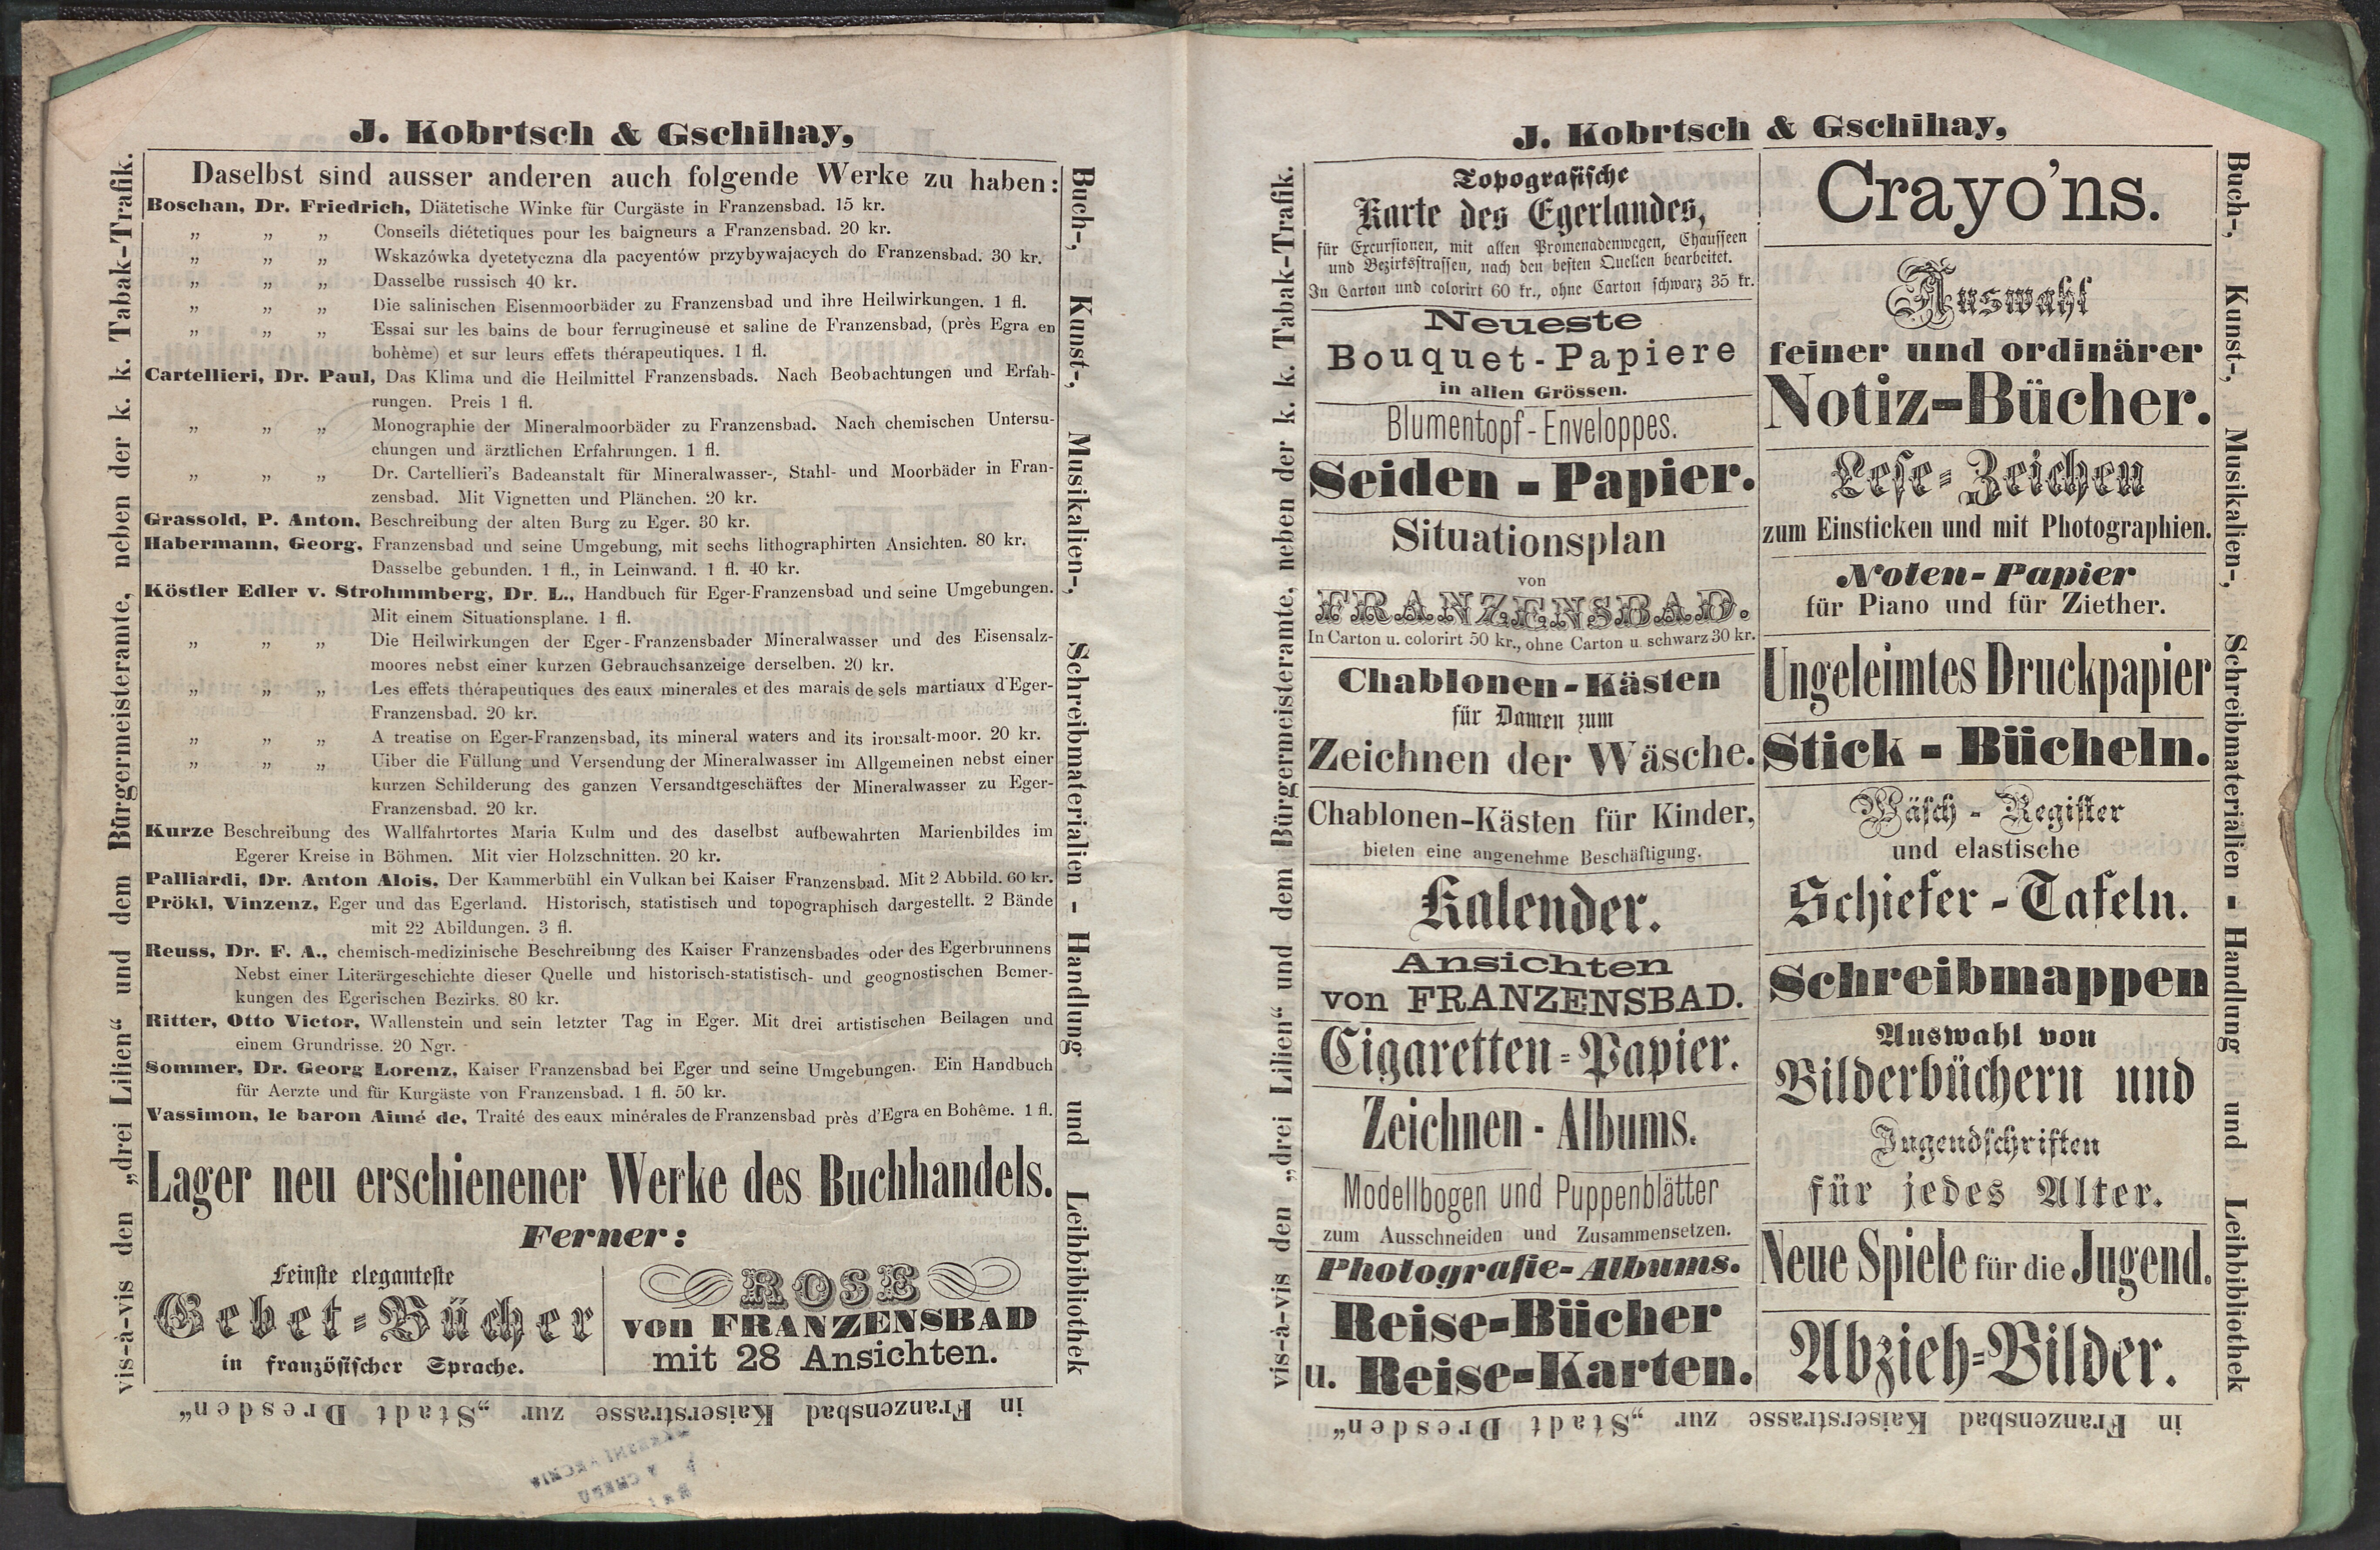 J. Kobrtsch & Gschihay,
Daselbst sind ausser anderen auch folgende Werke zu haben:
Boschan, Dr. Friedrich, Diätetische Winke für Curgäste in Franzensbad. 15 kr.
„ „ „ Conseils diétetiques pour les baigneurs a Franzensbad. 20 kr.
„ „ „ Wskazówka dyetetyczna dla pacyentów przybywajacych do Franzensbad. 30 kr.
„ „ „ Dasselbe russisch 40 kr.
„ „ „ Die salinischen Eisenmoorbäder zu Franzensbad und ihre Heilwirkungen. 1 fl.
„ „ „ Essai sur les bains de bour ferrugineuse et saline de Franzensbad, (près Egra en
bohème) et sur leurs effets thérapeutiques. 1 fl.
Cartellieri, Dr. Paul, Das Klima und die Heilmittel Franzensbads. Nach Beobachtungen und Erfah-
rungen. Preis 1 fl.
„ „ „ Monographie der Mineralmoorbäder zu Franzensbad. Nach chemischen Untersu-
chungen und ärztlichen Erfahrungen. 1 fl.
„ „ „ Dr. Cartellieri's Badeanstalt für Mineralwasser-, Stahl- und Moorbäder in Fran-
zensbad. Mit Vignetten und Plänchen. 20 kr.
Grassold, P. Anton, Beschreibung der alten Burg zu Eger. 30 kr.
Habermann, Georg, Franzensbad und seine Umgebung, mit sechs lithographirten Ansichten. 80 kr.
Dasselbe gebunden. 1 fl., in Leinwand. 1 fl. 40 kr.
Köstler Edler v. Strohmmberg, Dr. L., Handbuch für Eger-Franzensbad und seine Umgebungen.
Mit einem Situationsplane. 1 fl.
„ „ „ Die Heilwirkungen der Eger-Franzensbader Mineralwasser und des Eisensalz-
moores nebst einer kurzen Gebrauchsanzeige derselben. 20 kr.
„ „ „ Les effets thérapeutiques des eaux minerales et des marais de sels martiaux d'Eger-
Franzensbad. 20 kr.
„ „ „ A treatise on Eger-Franzensbad, its mineral waters and its ironsalt-moor. 20 kr.
„ „ „ Uiber die Füllung und Versendung der Mineralwasser im Allgemeinen nebst einer
kurzen Schilderung des ganzen Versandtgeschäftes der Mineralwasser zu Eger-
Franzensbad. 20 kr.
Kurze Beschreibung des Wallfahrtortes Maria Kulm und des daselbst aufbewahrten Marienbildes im
Egerer Kreise in Böhmen. Mit vier Holzschnitten. 20 kr.
Palliardi, Dr. Anton Alois, Der Kammerbühl ein Vulkan bei Kaiser Franzensbad. Mit 2 Abbild. 60 kr.
Prökl, Vinzenz, Eger und das Egerland. Historisch, statistisch und topographisch dargestellt. 2 Bände
mit 22 Abildungen. 3 fl.
Reuss, Dr. F. A., chemisch-medizinische Beschreibung des Kaiser Franzensbades oder des Egerbrunnens
Nebst einer Literärgeschichte dieser Quelle und historisch-statistisch- und geognostischen Bemer-
kungen des Egerischen Bezirks. 80 kr.
Ritter, Otto Victor, Wallenstein und sein letzter Tag in Eger. Mit drei artistischen Beilagen und
einem Grundrisse. 20 Ngr.
Sommer, Dr. Georg Lorenz, Kaiser Franzensbad bei Eger und seine Umgebungen. Ein Handbuch
für Aerzte und für Kurgäste von Franzensbad. 1 fl. 50 kr.
Vassimon, le baron Aimé de, Traité des eaux minérales de Franzensbad près d'Egra en Bohême. 1 fl.
Lager neu erschienener Werke des Buchhandels.
Ferner:
Feinste eleganteste
Gebet-Bücher
in französischer Sprache.
ROSE
von FRANZENSBAD
mit 28 Ansichten.
Buch-, Kunst-, Musikalien-, Schreibmaterialien - Handlung und Leihbibliothek
in Franzensbad Kaiserstrasse zur „Stadt Dresden“
vis-à-vis den „drei Lilien“ und dem Bürgermeisteramte, neben der k. k. Tabak-Trafik.
J. Kobrtsch & Gschihay,
Topografische
Karte des Egerlandes,
für Excursionen, mit allen Promenadenwegen, Chausseen
und Bezirksstrassen, nach den besten Quellen bearbeitet.
In Carton und colorirt 60 kr., ohne Carton schwarz 35 kr.
Neueste
Bouquet-Papiere
in allen Grössen.
Blumentopf-Enveloppes.
Seiden-Papier.
Situationsplan
von
FRANZENSBAD.
In Carton u. colorirt 50 kr., ohne Carton u. schwarz 30 kr.
Chablonen-Kästen
für Damen zum
Zeichnen der Wäsche.
Chablonen-Kästen für Kinder,
bieten eine angenehme Beschäftigung.
Kalender.
Ansichten
von FRANZENSBAD.
Cigaretten-Papier.
Zeichnen-Albums.
Modellbogen und Puppenblätter
zum Ausschneiden und Zusammensetzen.
Photografie-Albums.
Reise-Bücher
u. Reise-Karten.
Crayo'ns.
Auswahl
feiner und ordinärer
Notiz-Bücher.
Lese-Zeichen
zum Einsticken und mit Photographien.
Noten-Papier
für Piano und für Ziether.
Ungeleimtes Druckpapier
Stick-Bücheln.
Wäsch-Register
und elastische
Schiefer-Tafeln.
Schreibmappen
Auswahl von
Bilderbüchern und
Jugendschriften
für jedes Alter.
Neue Spiele für die Jugend.
Abzieh-Bilder.
Buch-, Kunst-, Musikalien-, Schreibmaterialien - Handlung und Leihbibliothek
in Franzensbad Kaiserstrasse zur „Stadt Dresden“
vis-à-vis den „drei Lilien“ und dem Bürgermeisteramte, neben der k. k. Tabak-Trafik.